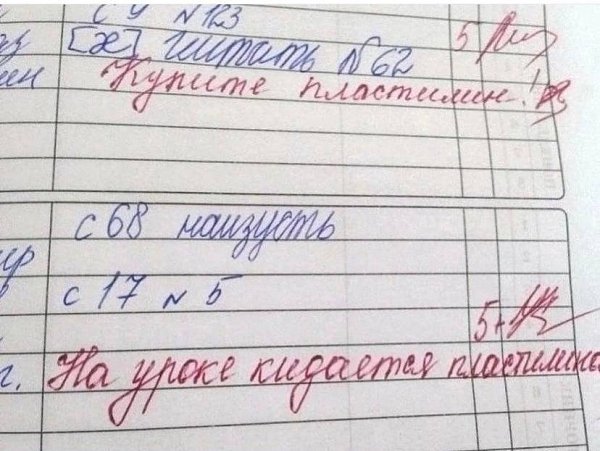 с 4 № 123
[æ] читать № 62 5
Купите пластилин!
с 68 наизусть
с 17 № 5
5+
На уроке кидается пластилином